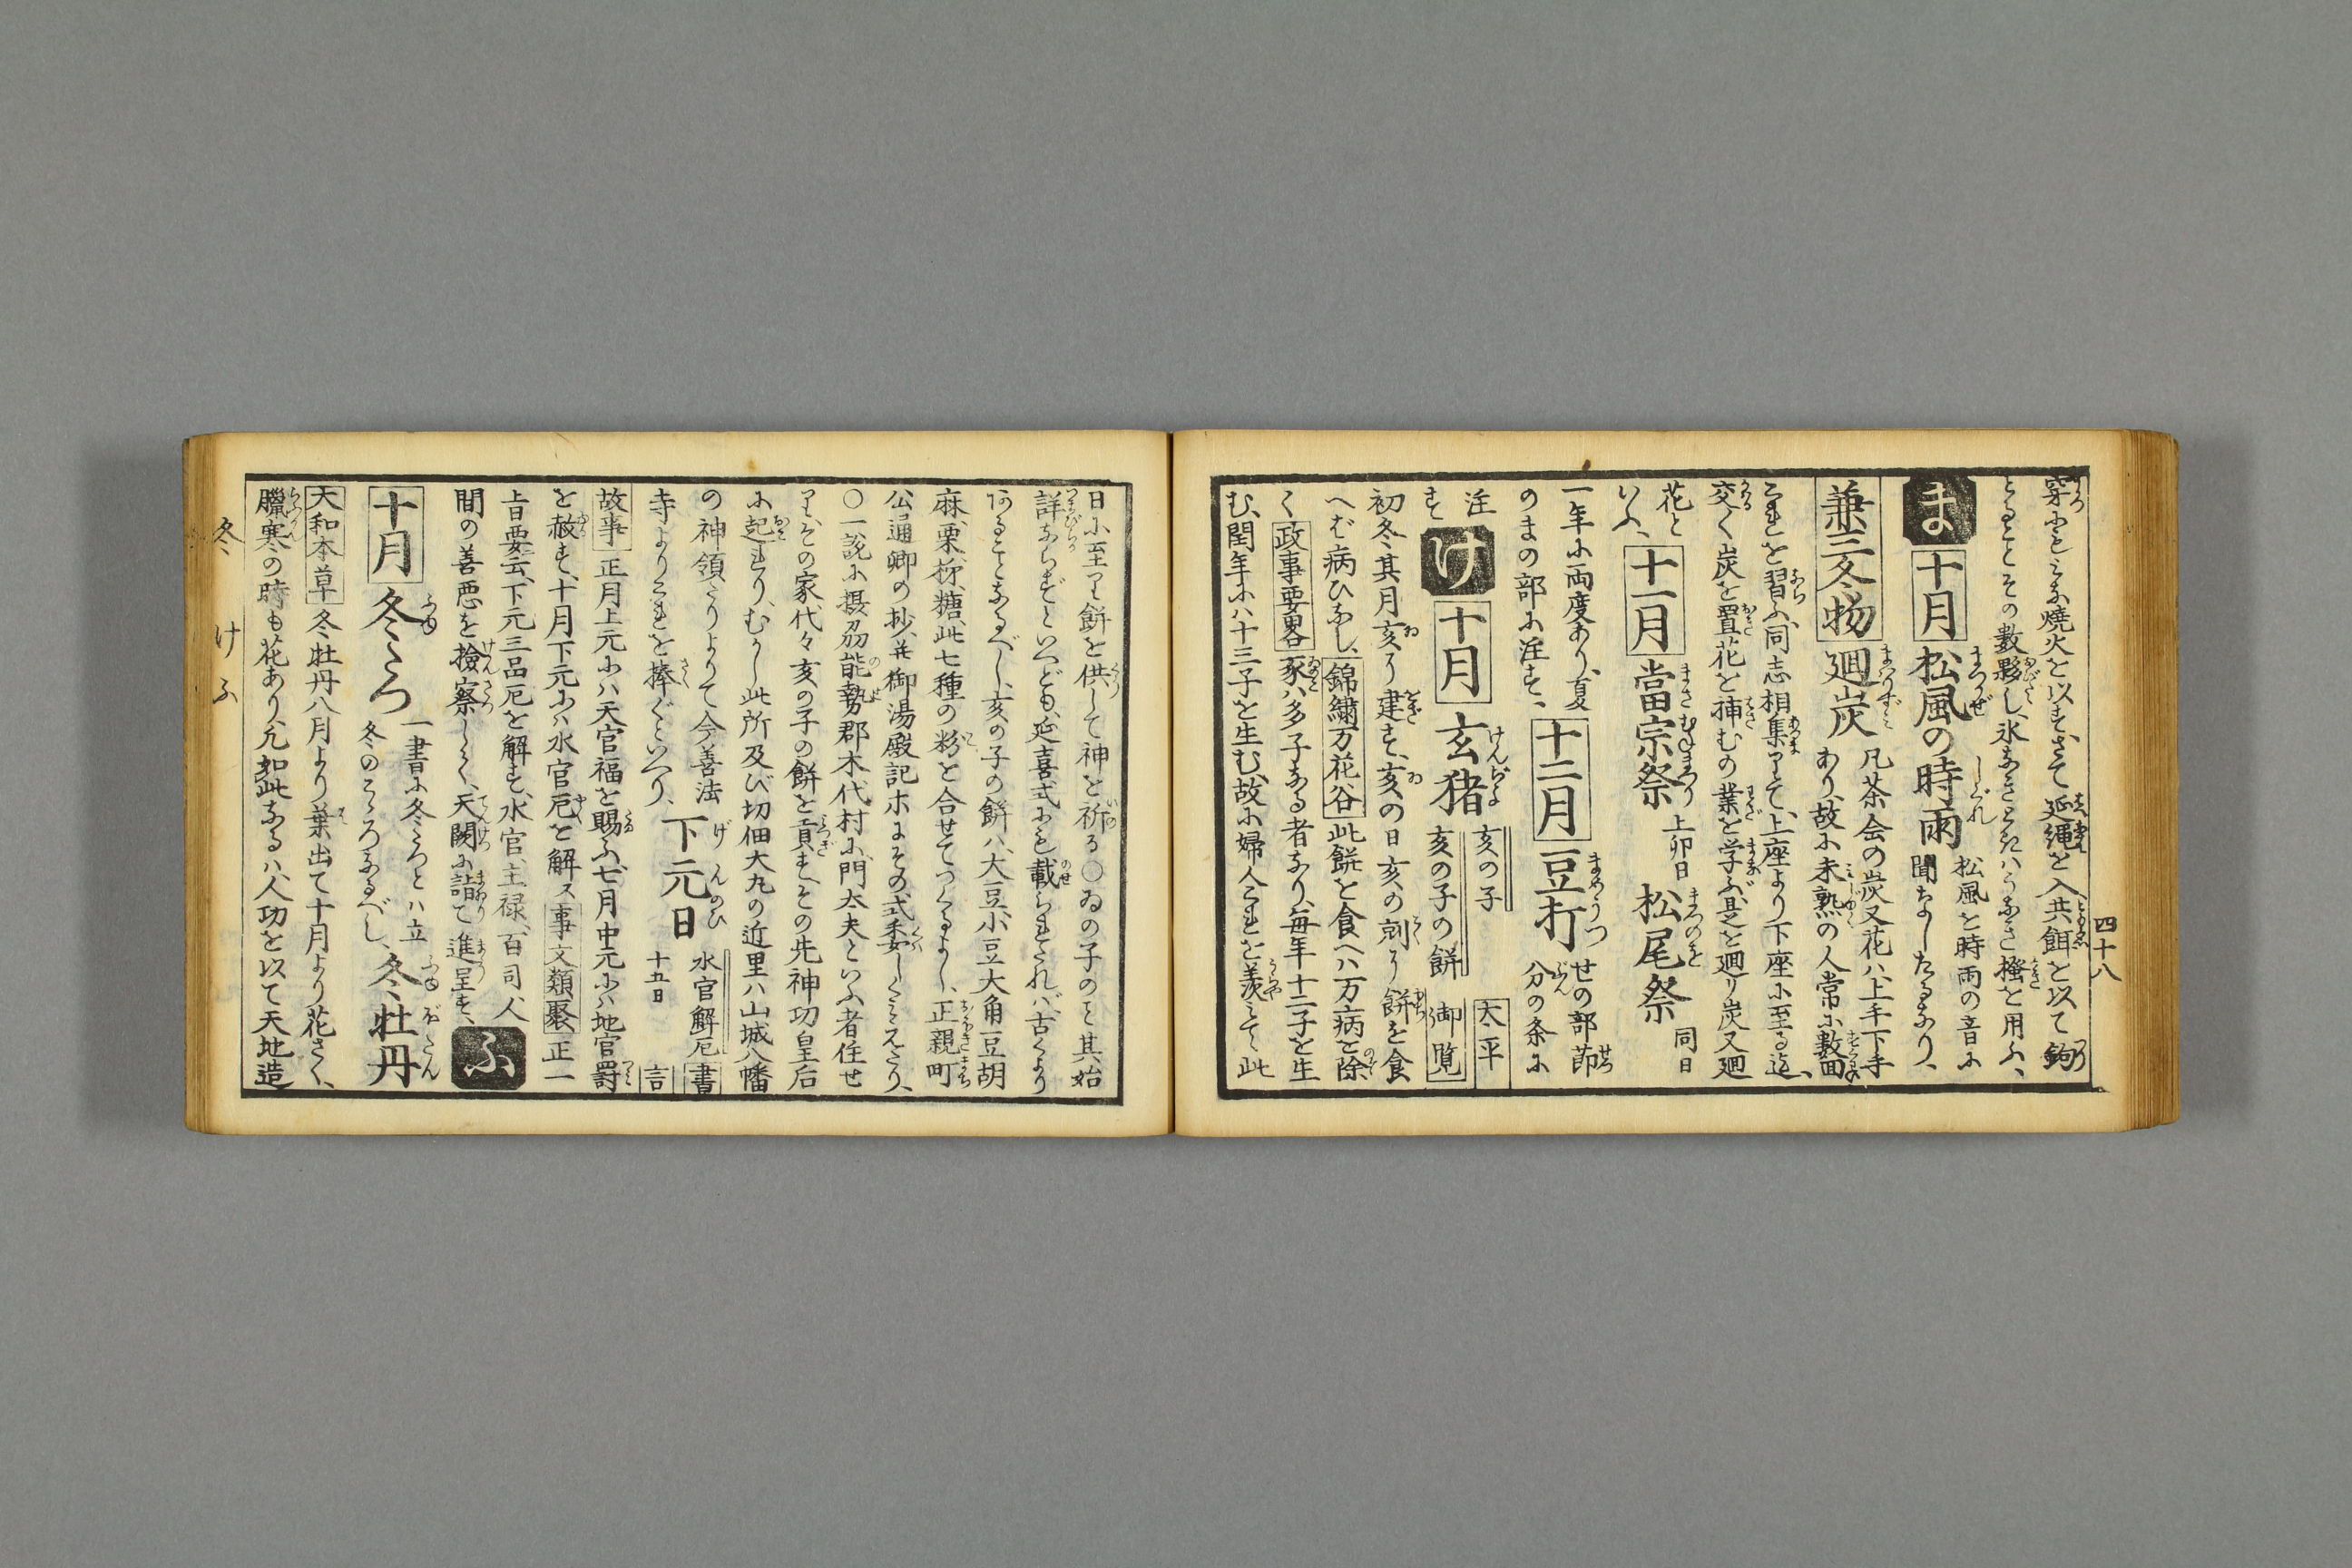 四十八
穿おもふ焼火を以す、さて延縄を入共餌を以て鉤
とることその数夥し、氷なきときハうなき掻を用ふ、
ま 十月 松風の時雨 松風を時雨の音に
聞なしたるなり、
兼三冬物 廻炭 凡茶会の炭又花ハ上手下手
あり、故に未熟の人常に数面
これを習ふ、同志相集りて、上座より下座に至る迄、
交く炭を置花を挿むの業を学ぶ、是を廻り炭又廻
花と
いふ、 十一月 當宗祭 上卯日 松尾祭 同日
一年に両度あり、夏
のまの部に注す、 十二月 豆打 せの部節
分の条に
注
す け 十月 玄猪 亥の子
亥の子の餅 太平
御覧
初冬其月亥に建す、亥の日亥の刻に餅を食
へば病ひなし、錦繍万花谷此餅を食へハ万病を除
く政事要畧豕ハ多子なる者なり、毎年十二子を生
む、閏年にハ十三子を生む、故に婦人これを羨みて、此
日に至り餅を供して神を祈る○ゐの子のこと其始
詳ならずといへども、延喜式にも載られたれバ、古くより
あることなるべし、亥の子の餅ハ、大豆小豆大角豆胡
麻、栗、柿、糖、此七種の粉を合せてつくるよし、正親町
公通卿の抄、并御湯殿記ホにその式委しくみえたり、
○一説に摂刕能勢郡木代村に、門太夫といふ者住せ
り、その家代々亥の子の餅を貢す、その先神功皇后
に起れり、むかし此所及び切畑大丸の近里ハ山城八幡
の神領たりよりて今善法
寺よりこれを捧ぐといへり、 下元日 水官解厄 書
十五日 言
故事 正月上元にハ天官福を賜ふ、七月中元にハ地官罸
を赦す、十月下元にハ水官厄を解ス事文類聚正一
旨要云、下元三品厄を解す、水官、主禄、百司、人
間の善悪を撿察しく、天闕に詣て進呈す、 ふ
十月 冬ごろ 一書に冬ころとハ立
冬のころなるべし、 冬牡丹
大和本草 冬牡丹八月より葉出て十月より花さく、
臘寒の時も花あり、凡如此なるハ、人功を以て天地造
冬 けふ